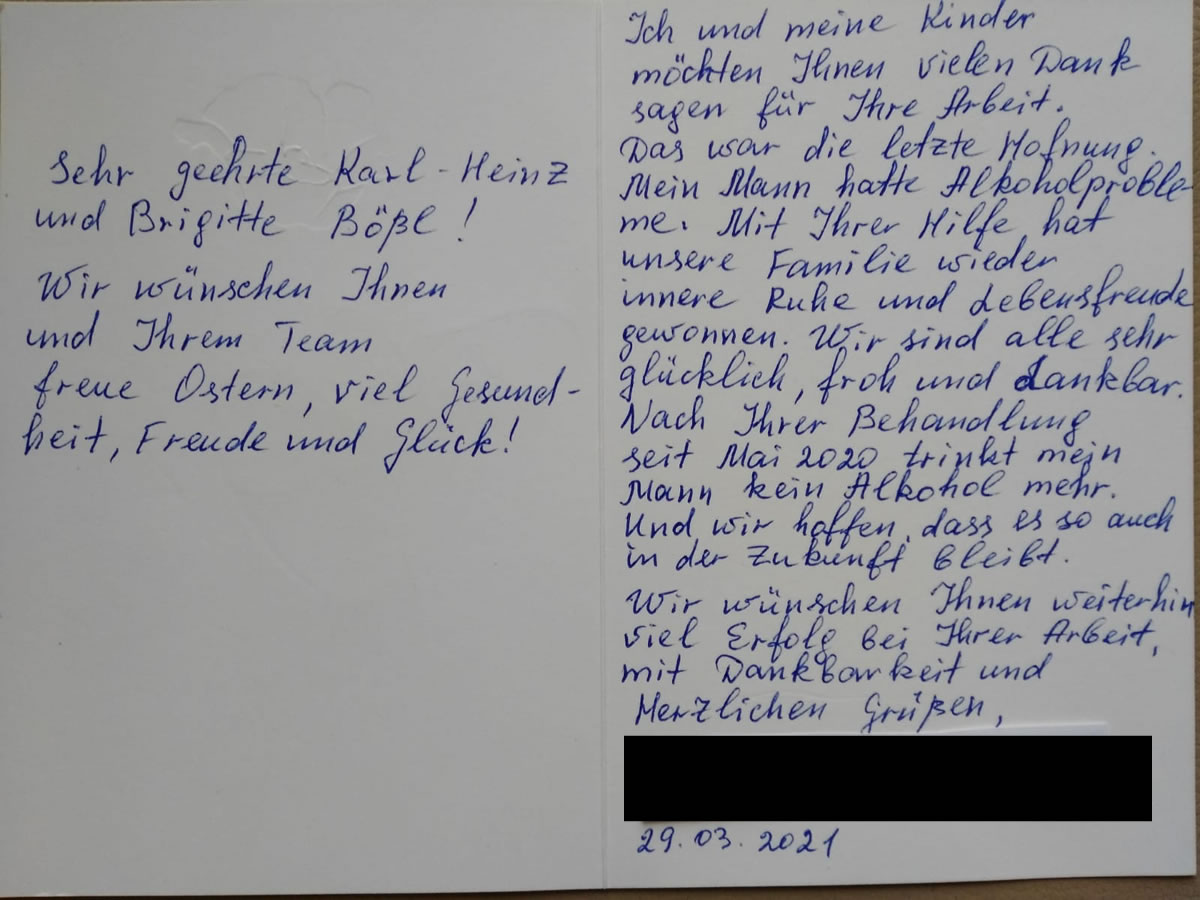 Sehr geehrte Karl-Heinz
und Brigitte Bößl!
Wir wünschen Ihnen
und Ihrem Team
freue Ostern, viel Gesund-
heit, Freude und Glück!
Ich und meine Kinder
möchten Ihnen vielen Dank
sagen für Ihre Arbeit.
Das war die letzte Hofnung.
Mein Mann hatte Alkoholproble-
me. Mit Ihrer Hilfe hat
unsere Familie wieder
innere Ruhe und Lebensfreude
gewonnen. Wir sind alle sehr
glücklich, froh und dankbar.
Nach Ihrer Behandlung
seit Mai 2020 trinkt mein
Mann kein Alkohol mehr.
Und wir hoffen, dass es so auch
in der Zukunft bleibt.
Wir wünschen Ihnen weiterhin
viel Erfolg bei Ihrer Arbeit,
mit Dankbarkeit und
Herzlichen Grüßen,
29.03.2021